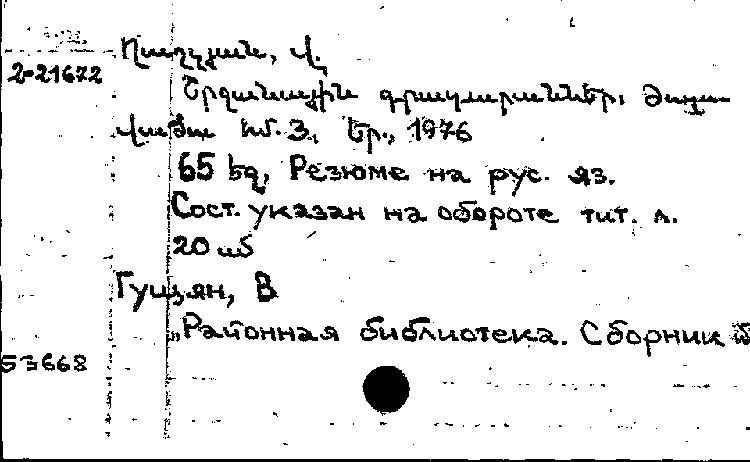 2-21672
Շրջանային գրադարաններ. Ժողո-
վածու հմ. 3. Եր., 1976
65 եզ, Резюме на рус. яз.
Сост. указан на обороте тит. л.
20 տճ
Гуцян, В
„Районная библиотека. Сборник
53668